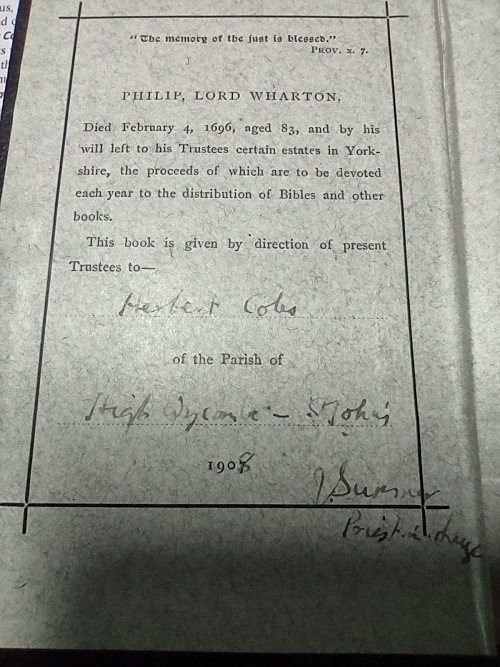 "The memory of the just is blessed."
PROV. x. 7.
PHILIP, LORD WHARTON,
Died February 4, 1696, aged 83, and by his
will left to his Trustees certain estates in York-
shire, the proceeds of which are to be devoted
each year to the distribution of Bibles and other
books.
This book is given by direction of present
Trustees to—
Herbert Coles
of the Parish of
High Wycombe – St John's
1908
J Sumner
Priest-in-charge